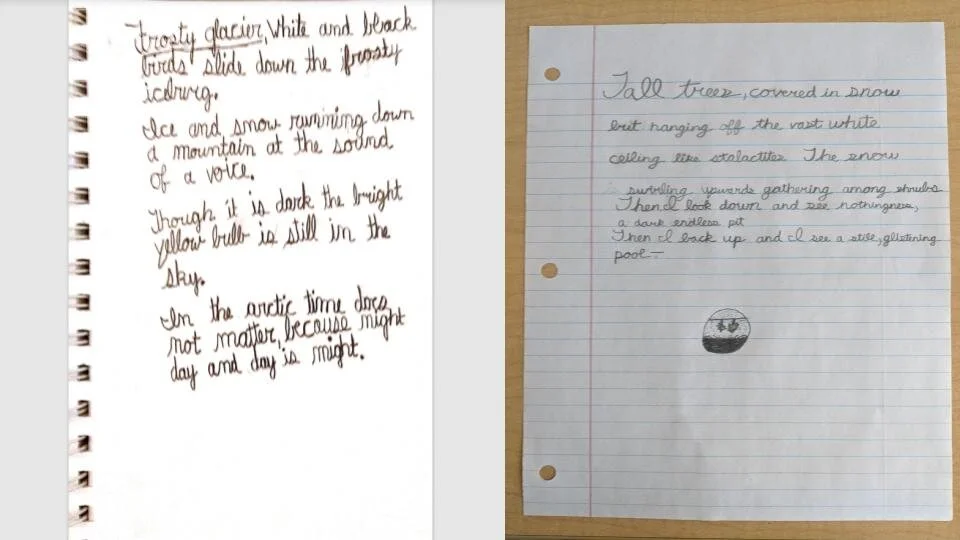 Frosty glacier, White and black
birds slide down the frosty
iceburg.
Ice and snow running down
a mountain at the sound
of a voice.
Though it is dark the bright
yellow bulb is still in the
sky.
In the arctic time does
not matter, because night
day and day is night.
Tall trees, covered in snow
but hanging off the vast white
ceiling like stalactites The snow
swirling upwards gathering among shrubs
Then I look down and see nothingness,
a dark endless pit
Then I back up and I see a still, glistening
pool